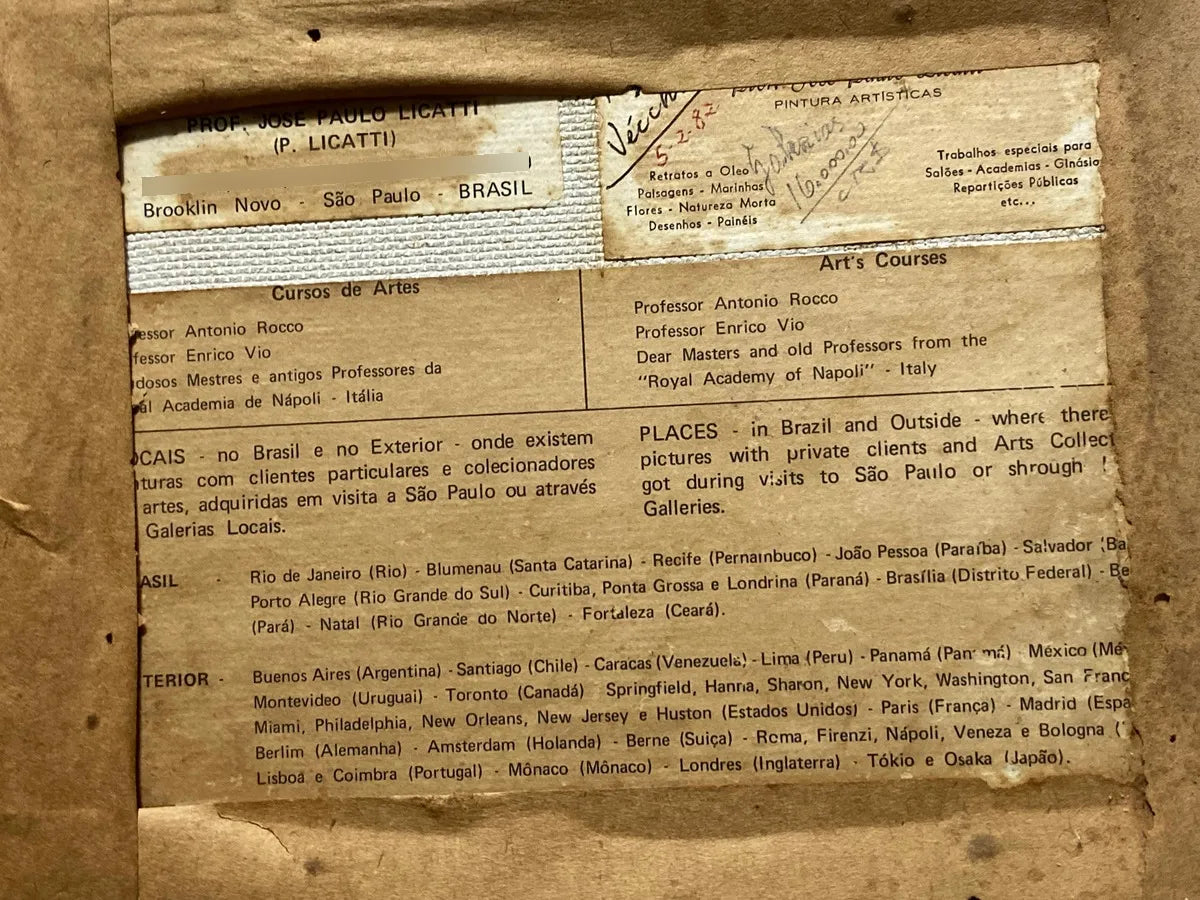 PROF. JOSÉ PAULO LICATTI
(P. LICATTI)
Brooklin Novo - São Paulo - BRASIL
Vécch
5-2-82
PINTURA ARTÍSTICAS
Retratos a Oleo
Paisagens - Marinhas
Flores - Natureza Morta
Desenhos - Painéis
16.000.00
Trabalhos especiais para
Salões - Academias - Ginásio
Repartições Públicas
etc...
Cursos de Artes
essor Antonio Rocco
fessor Enrico Vio
dosos Mestres e antigos Professores da
ál Academia de Nápoli - Itália
Art's Courses
Professor Antonio Rocco
Professor Enrico Vio
Dear Masters and old Professors from the
"Royal Academy of Napoli" - Italy
OCAIS - no Brasil e no Exterior - onde existem
turas com clientes particulares e colecionadores
artes, adquiridas em visita a São Paulo ou através
Galerias Locais.
PLACES - in Brazil and Outside - where there
pictures with private clients and Arts Collect
got during visits to São Paulo or shrough
Galleries.
ASIL - Rio de Janeiro (Rio) - Blumenau (Santa Catarina) - Recife (Pernambuco) - João Pessoa (Paraíba) - Salvador (Ba
Porto Alegre (Rio Grande do Sul) - Curitiba, Ponta Grossa e Londrina (Paraná) - Brasília (Distrito Federal) - Be
(Pará) - Natal (Rio Grande do Norte) - Fortaleza (Ceará).
TERIOR - Buenos Aires (Argentina) - Santiago (Chile) - Caracas (Venezuela) - Lima (Peru) - Panamá (Panamá) - México (Mé
Montevideo (Uruguai) - Toronto (Canadá) Springfield, Hanna, Sharon, New York, Washington, San Franc
Miami, Philadelphia, New Orleans, New Jersey e Huston (Estados Unidos) - Paris (França) - Madrid (Espa
Berlim (Alemanha) - Amsterdam (Holanda) - Berne (Suiça) - Roma, Firenzi, Nápoli, Veneza e Bologna (
Lisboa e Coimbra (Portugal) - Mônaco (Mônaco) - Londres (Inglaterra) - Tókio e Osaka (Japão).